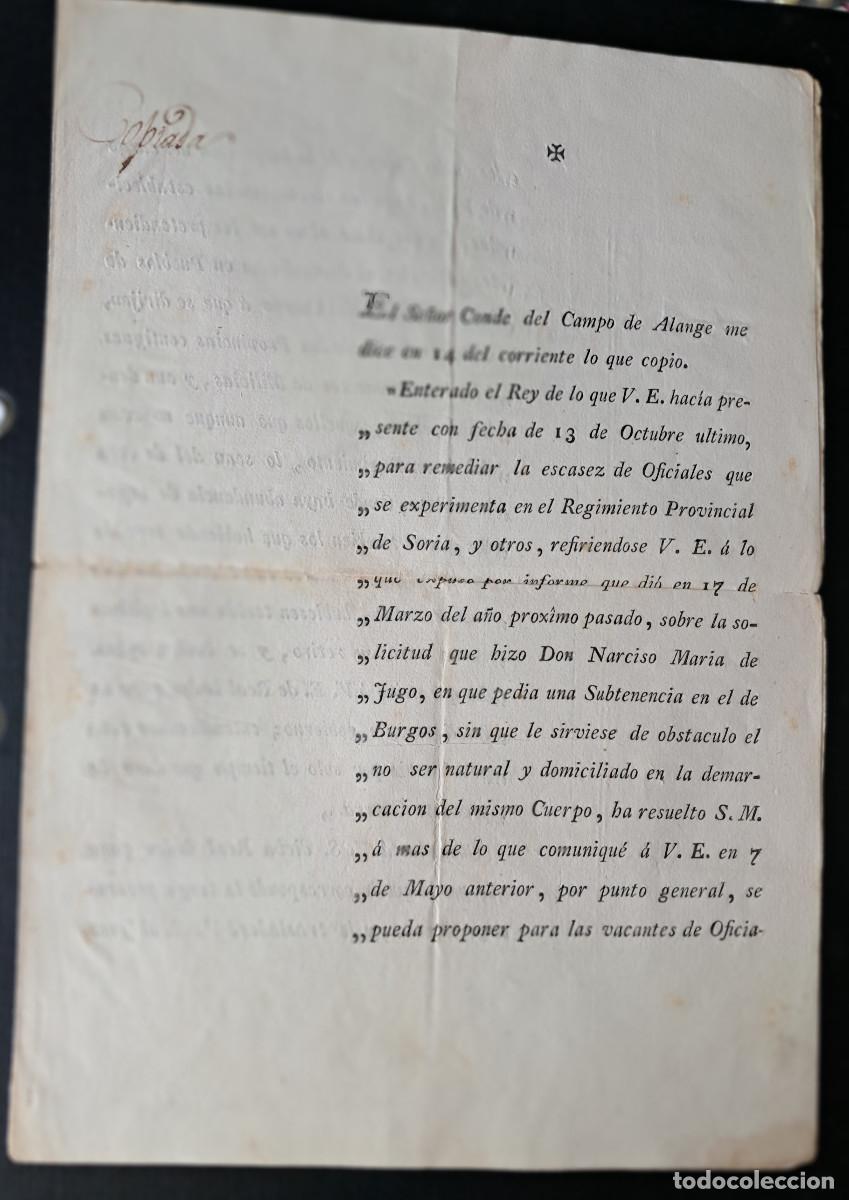 Copiada
✠
El Señor Conde del Campo de Alange me
dice en 14 del corriente lo que copio.
"Enterado el Rey de lo que V. E. hacía pre-
„sente con fecha de 13 de Octubre ultimo,
„para remediar la escasez de Oficiales que
„se experimenta en el Regimiento Provincial
„de Soria, y otros, refiriendose V. E. á lo
„que expuso por informe que dió en 17 de
„Marzo del año proxîmo pasado, sobre la so-
„licitud que hizo Don Narciso Maria de
„Jugo, en que pedia una Subtenencia en el de
„Burgos, sin que le sirviese de obstaculo el
„no ser natural y domiciliado en la demar-
„cacion del mismo Cuerpo, ha resuelto S. M.
„á mas de lo que comuniqué á V. E. en 7
„de Mayo anterior, por punto general, se
„pueda proponer para las vacantes de Oficia-
todocoleccion